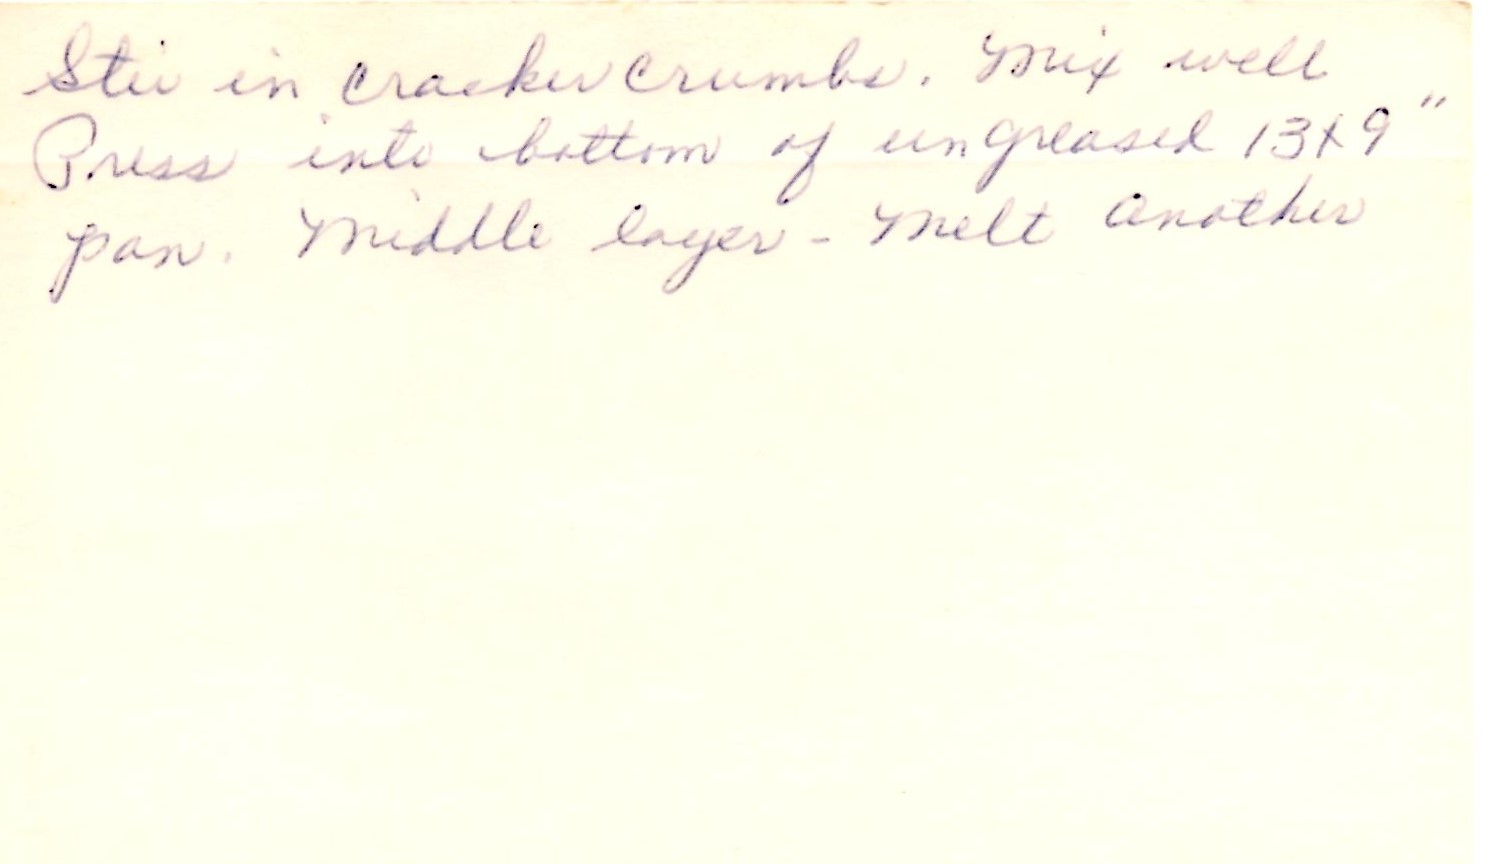 Stir in cracker crumbs. Mix well
Press into bottom of ungreased 13x9"
pan. Middle layer - Melt another